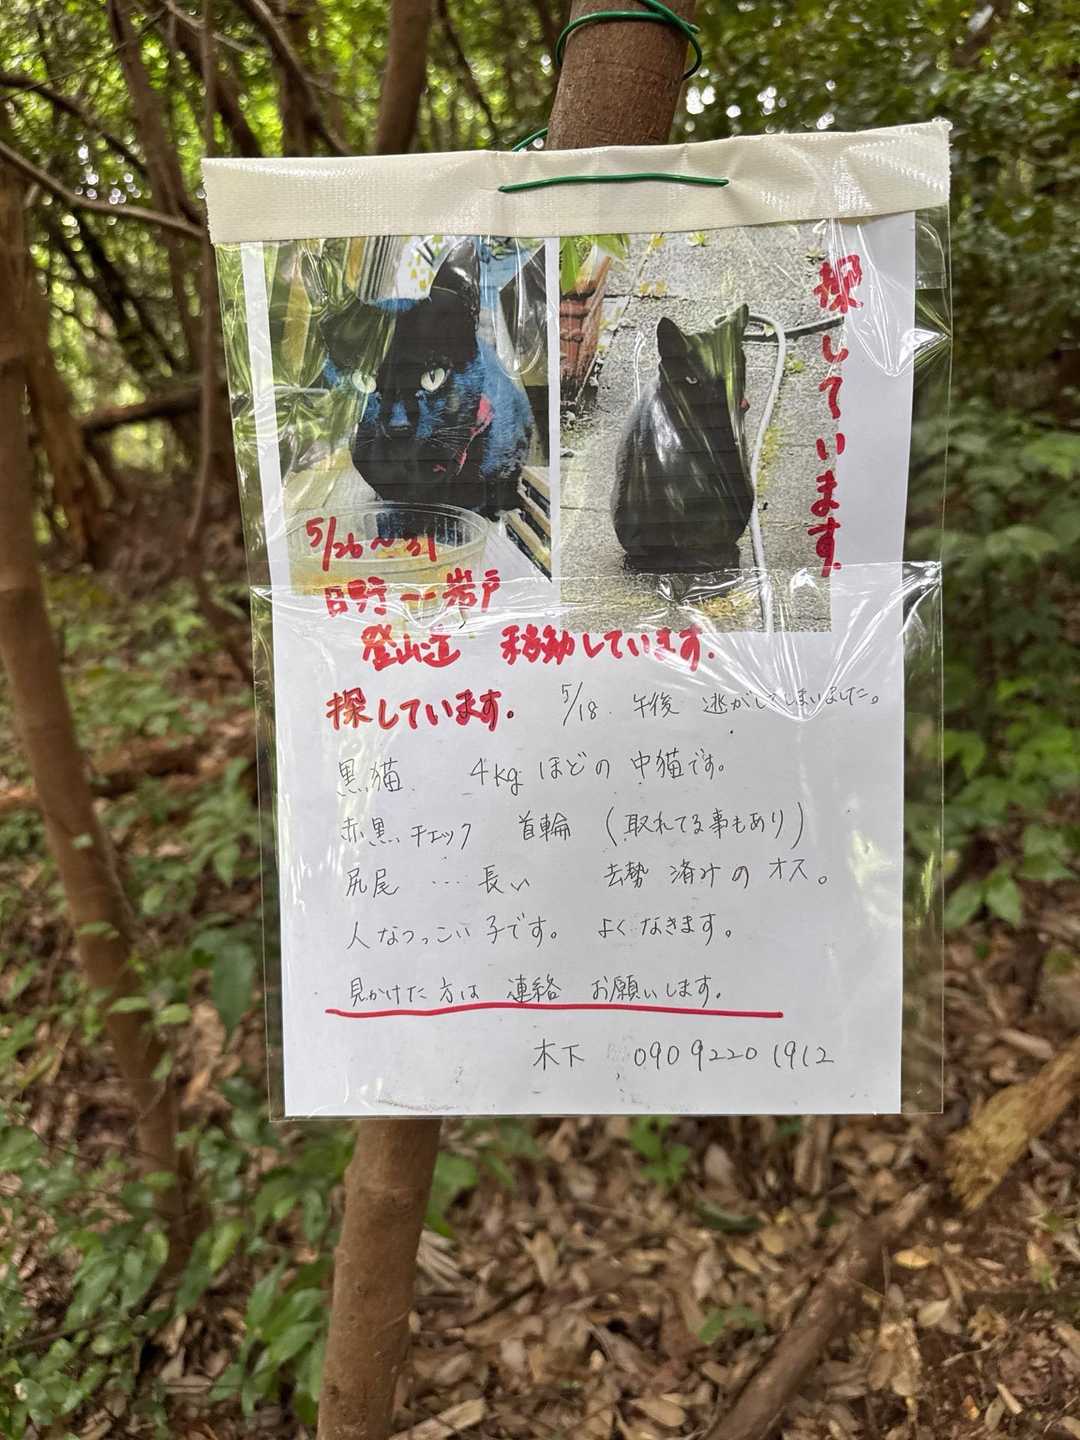 探しています
5/26〜31
日野〜岩戸
登山辺 移動しています.
探しています. 5/18. 午後 逃がしてしまいました。
黒猫. 4kgほどの中猫です。
赤黒チェック 首輪 (取れてる事もあり)
尻尾 … 長い 去勢済みのオス。
人なつっこい子です。 よくなきます。
見かけた方は 連絡 お願いします。
木下 090 9220 1912